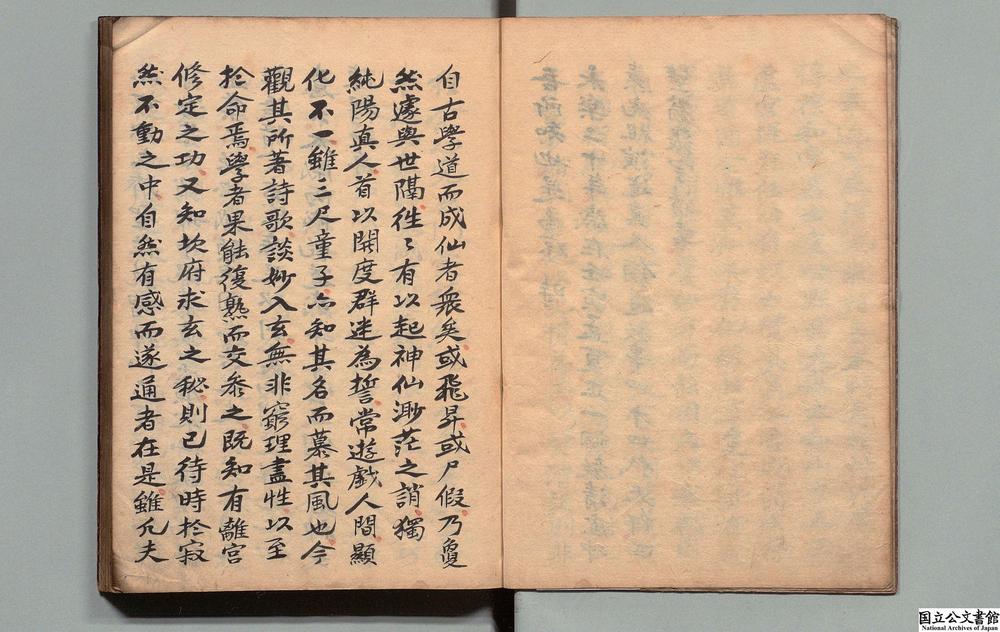 自古學道而成仙者衆矣或飛昇或尸假乃敻
然遽與世隔徃〻有以起神仙渺茫之誚獨
純陽真人首以開度群迷為誓常遊戲人間顯
化不一雖三尺童子亦知其名而慕其風也今
觀其所著詩歌談妙入玄無非窮理盡性以至
於命焉學者果能復熟而交叅之既知有離宮
修定之功又知坎府求玄之秘則已待時於寂
然不動之中自然有感而遂通者在是雖凢夫
国立公文書館
National Archives of Japan